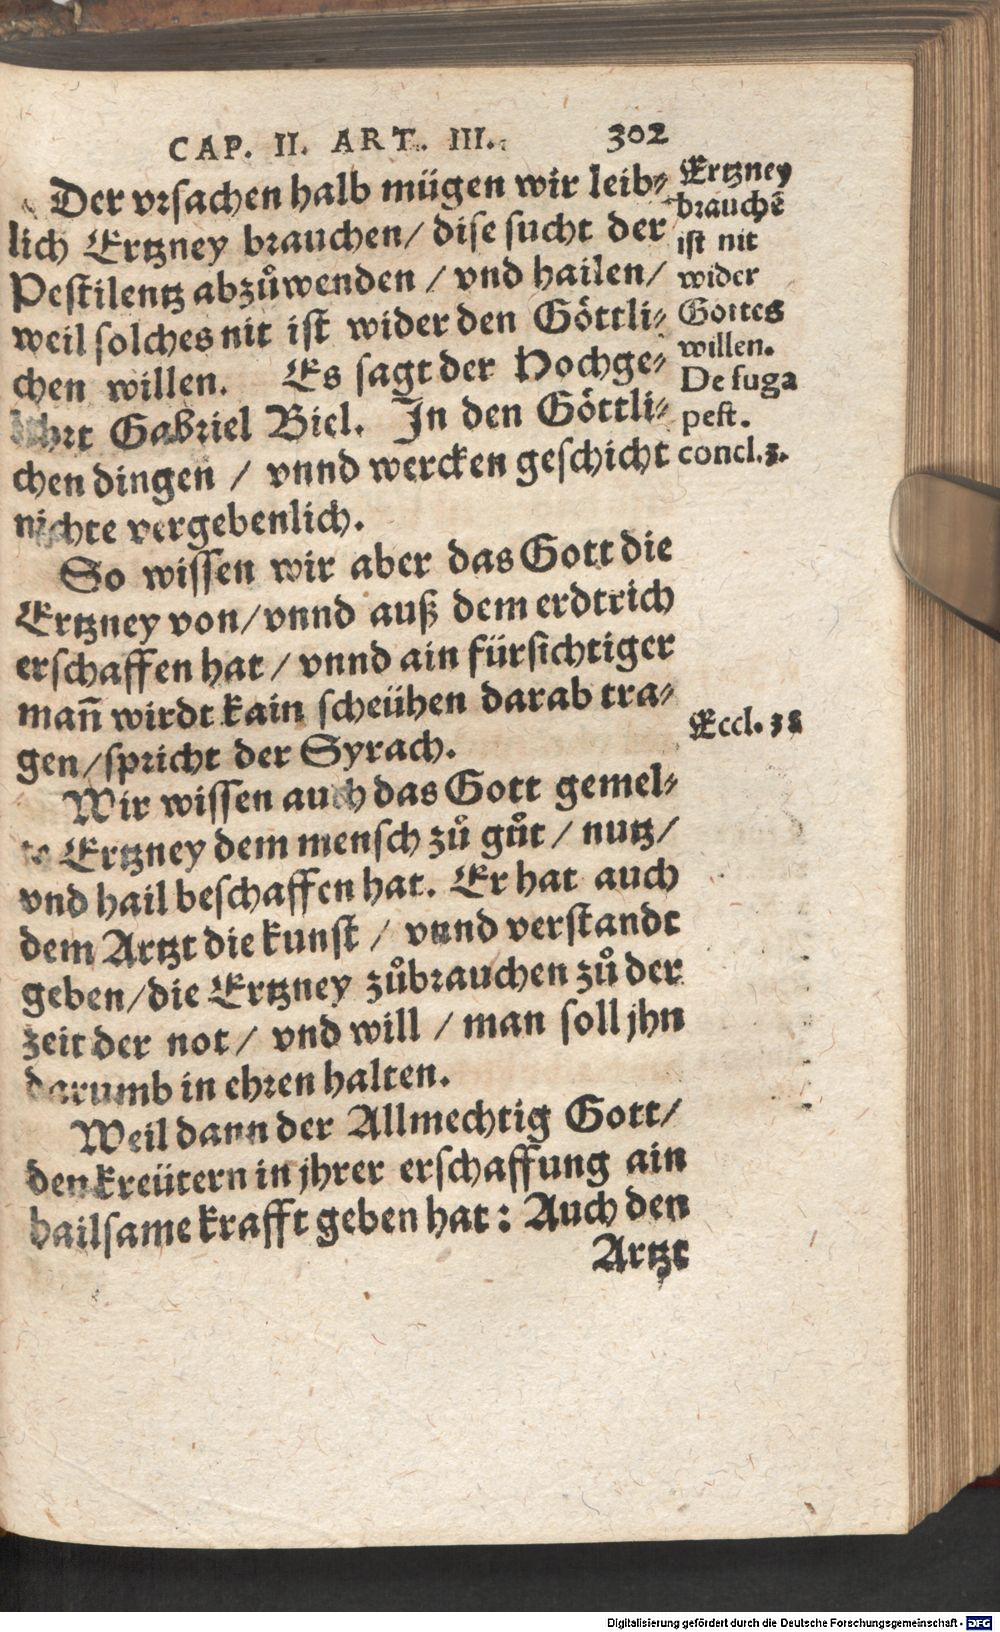 CAP. II. ART. III. 302
Der vrsachen halb mügen wir leib⸗
lich Ertzney brauchen/ dise sucht der
Pestilentz abzůwenden / vnd hailen/
weil solches nit ist wider den Göttli⸗
chen willen. Es sagt der Hochge⸗
lehrt Gabriel Biel. In den Göttli⸗
chen dingen / vnnd wercken geschicht
nichte vergebenlich.
So wissen wir aber das Gott die
Ertzney von/ vnnd auß dem erdtrich
erschaffen hat / vnnd ain fürsichtiger
mañ wirdt kain scheühen darab tra⸗
gen/ spricht der Syrach.
Wir wissen auch das Gott gemel⸗
te Ertzney dem mensch zů gůt / nutz/
vnd hail beschaffen hat. Er hat auch
dem Artzt die kunst / vnnd verstandt
geben/ die Ertzney zůbrauchen zů der
zeit der not / vnd will / man soll jhn
darumb in ehren halten.
Weil dann der Allmechtig Gott/
den kreütern in jhrer erschaffung ain
hailsame krafft geben hat: Auch den
Artzt
Ertzney
brauchē
ist nit
wider
Gottes
willen.
De fuga
pest.
concl. 3.
Eccl. 38
Digitalisierung gefördert durch die Deutsche Forschungsgemeinschaft - DFG